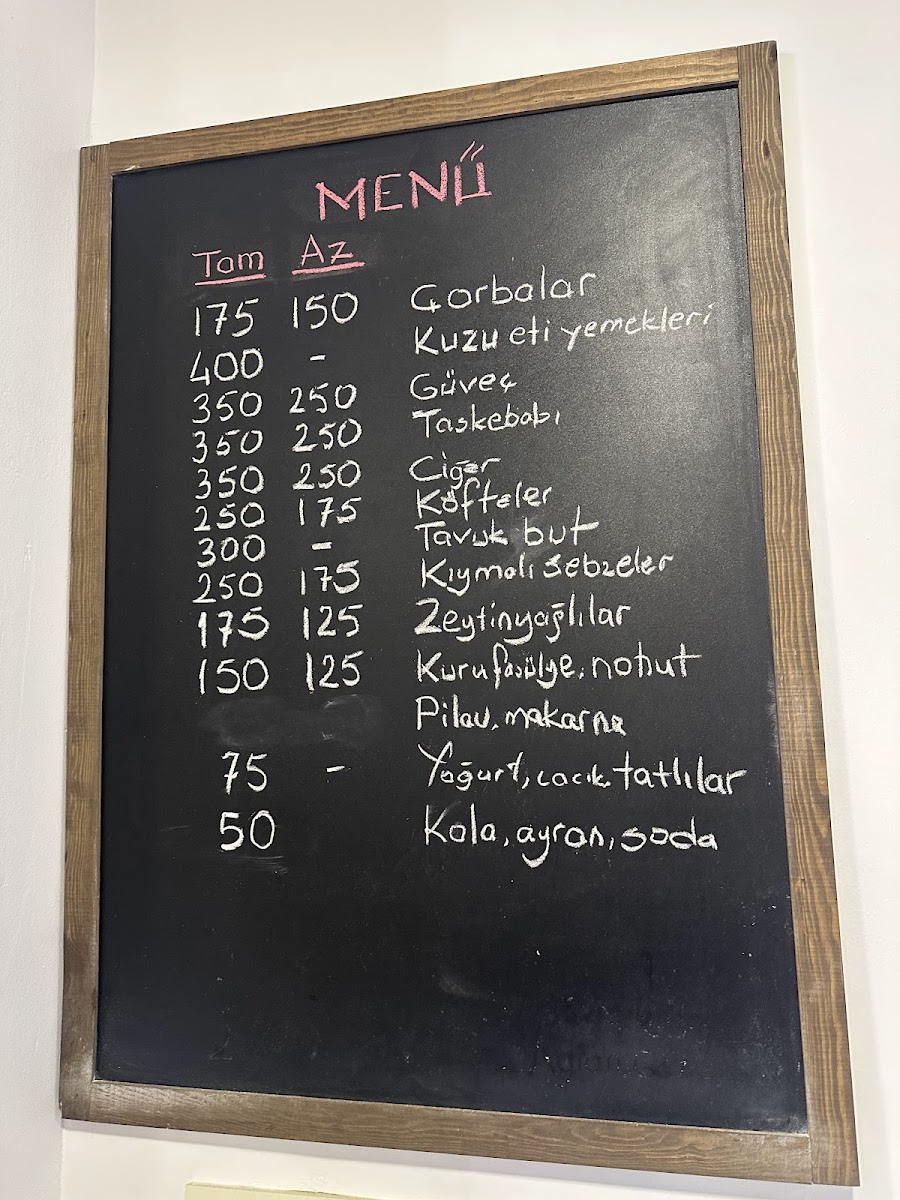 MENÜ
Tam Az
175 150 Çorbalar
400 - Kuzu eti yemekleri
350 250 Güveç
350 250 Taskebabı
350 250 Ciğer
250 175 Köfteler
300 - Tavuk but
250 175 Kıymalı Sebzeler
175 125 Zeytinyağlılar
150 125 Kuru fasülye, nohut
Pilav, makarna
75 - Yoğurt, cacık tatlılar
50 Kola, ayran, soda